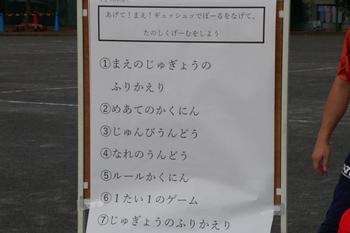 あげて！まえ！ギュッシュッでぼーるをなげて、
たのしくげーむをしよう
①まえのじゅぎょうの
ふりかえり
②めあてのかくにん
③じゅんびうんどう
④なれのうんどう
⑤ルールかくにん
⑥１たい１のゲーム
⑦じゅぎょうのふりかえり